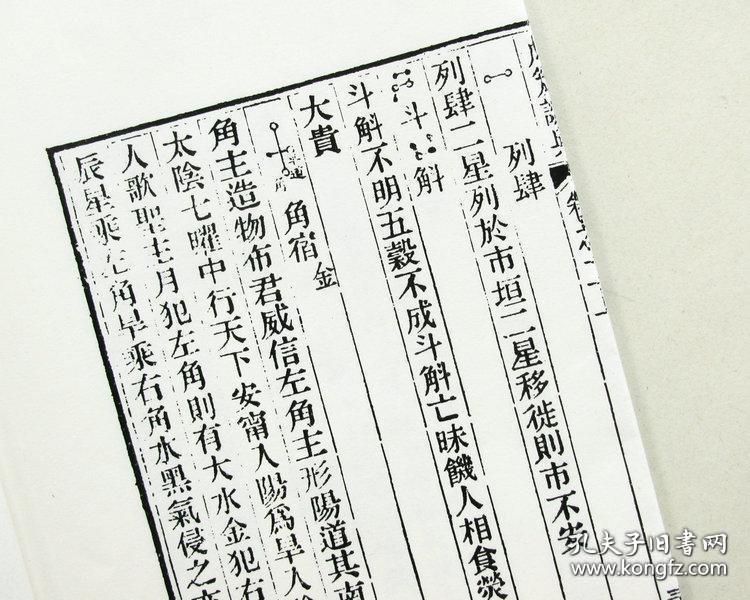 列肆
列肆二星列於市垣二星移徙則市不安
斗斛
斗斛不明五穀不成斗斛亡昧饑人相食熒
大貴
角宿金
角主造物布君威信左角主形陽道其南
太陰七曜中行天下安甯入陽爲旱入
人歌聖七月犯左角則有大水金犯右
辰星乘左角旱乘右角水黑氣侵之
孔夫子旧书网
www.kongfz.com